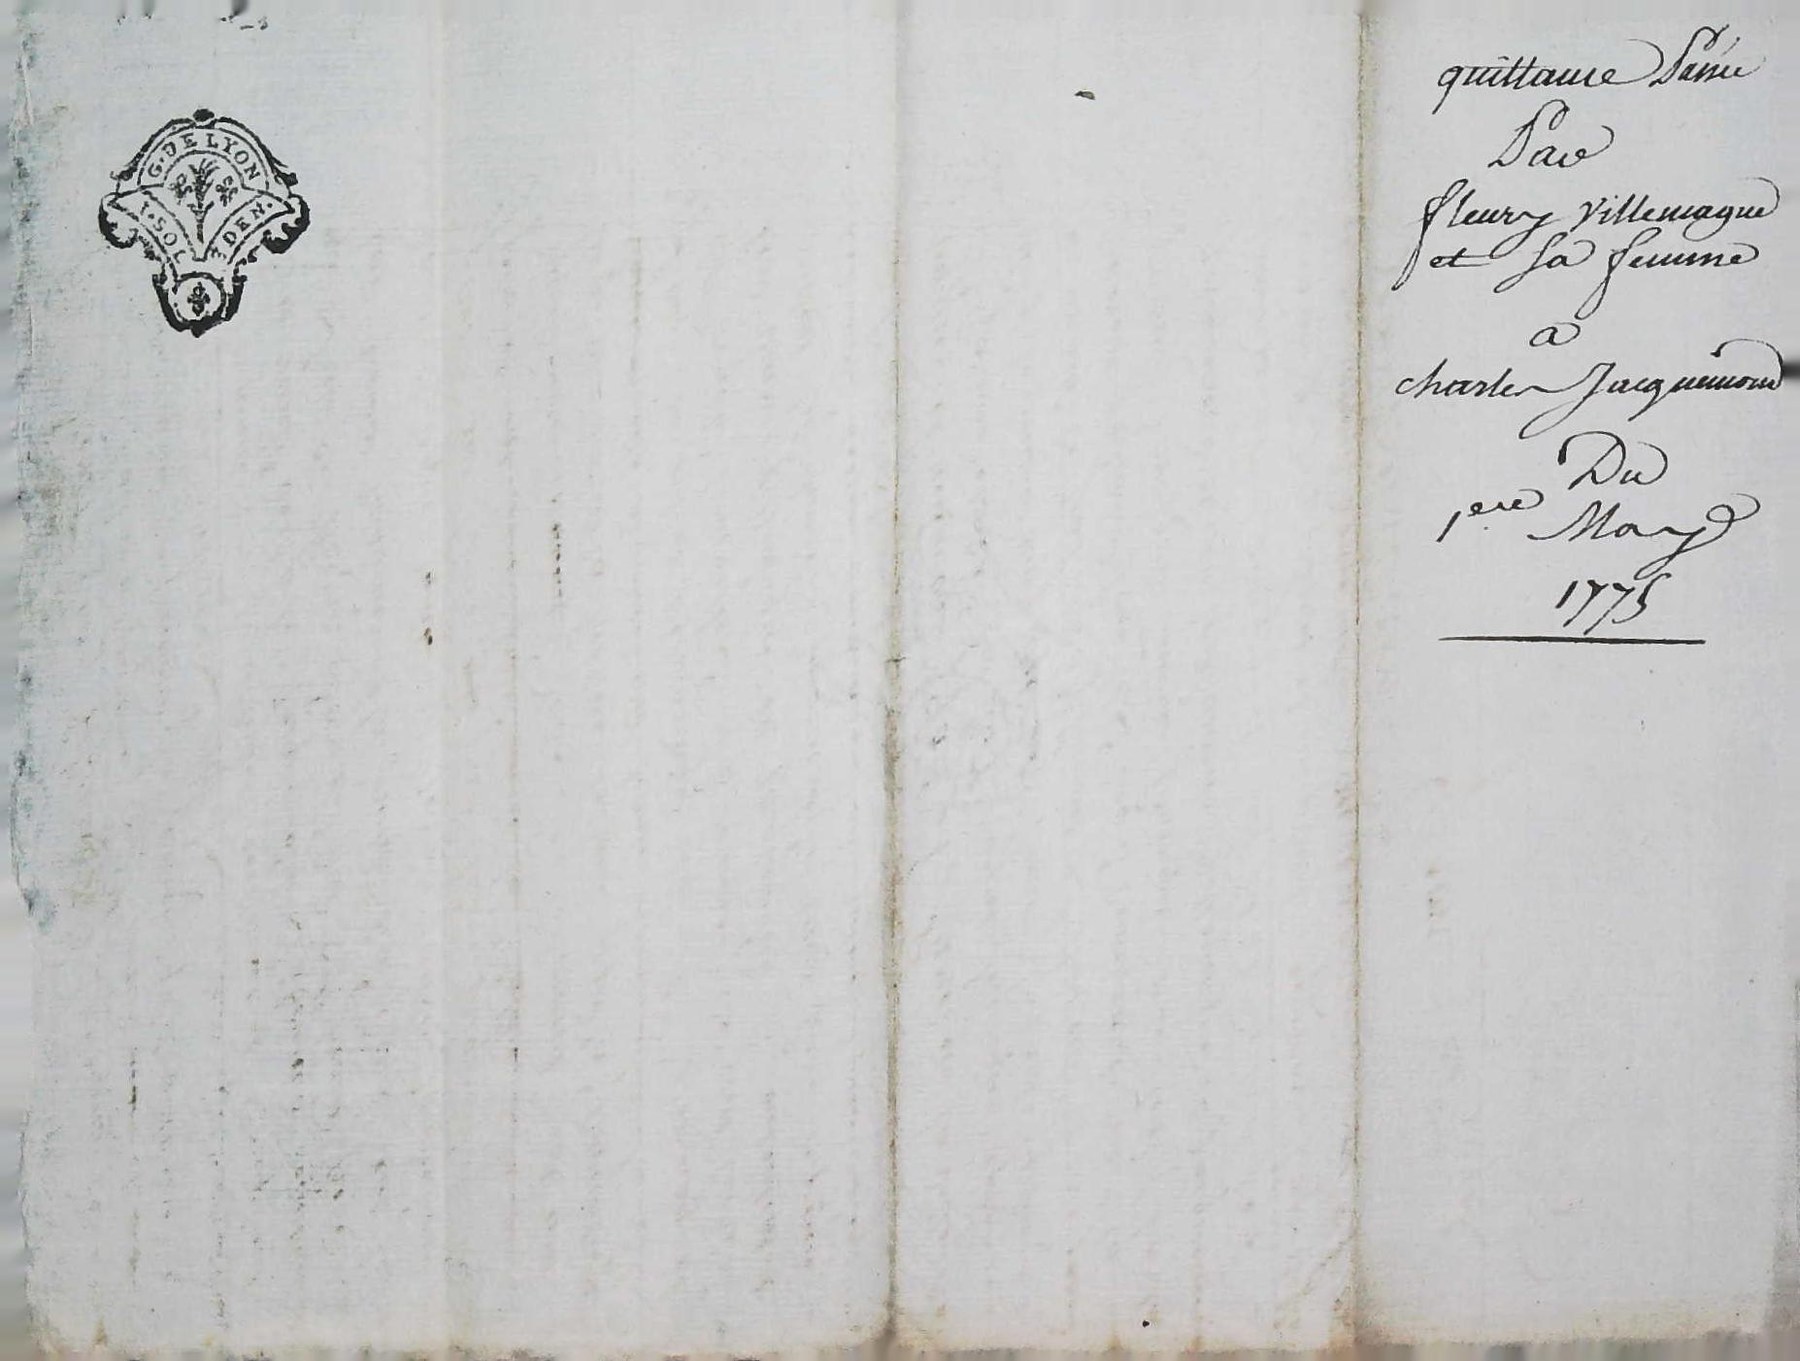 G. DE LYON
1. SOL DEN.
quittance Passée
Par
fleury Villemagne
et sa femme
a
charles Jacquemond
Du
1ere May
1775